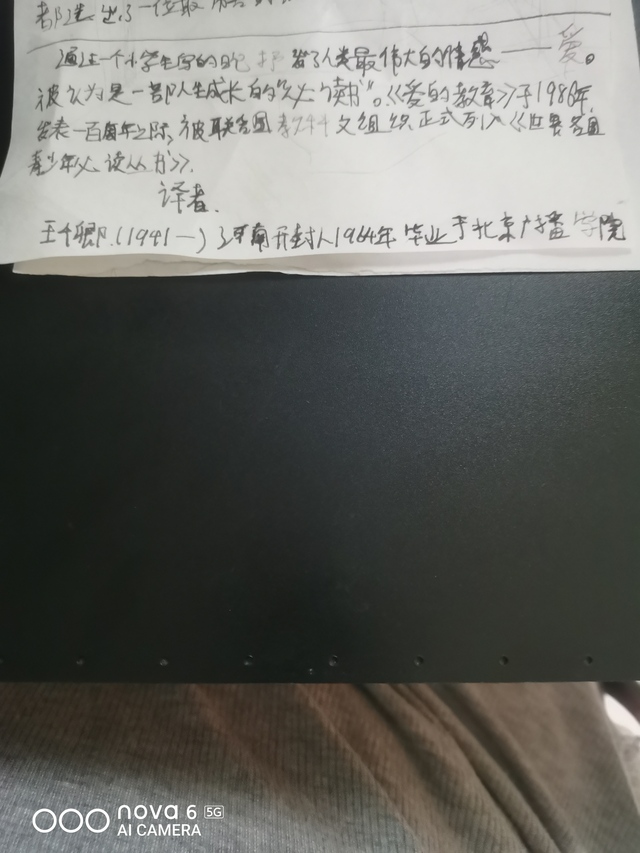 都 出了一位
通过一个小学生写的日记抒发了人类最伟大的情感——爱。
被认为是一部人生成长的“必读书”。《爱的教育》于1986年,
发表一百周年之际,被联合国教科文组织正式列入《世界各国
青少年必读丛书》.
译者.
王干卿.(1941—)河南开封人1964年毕业于北京广播学院
nova 6 5G
AI CAMERA